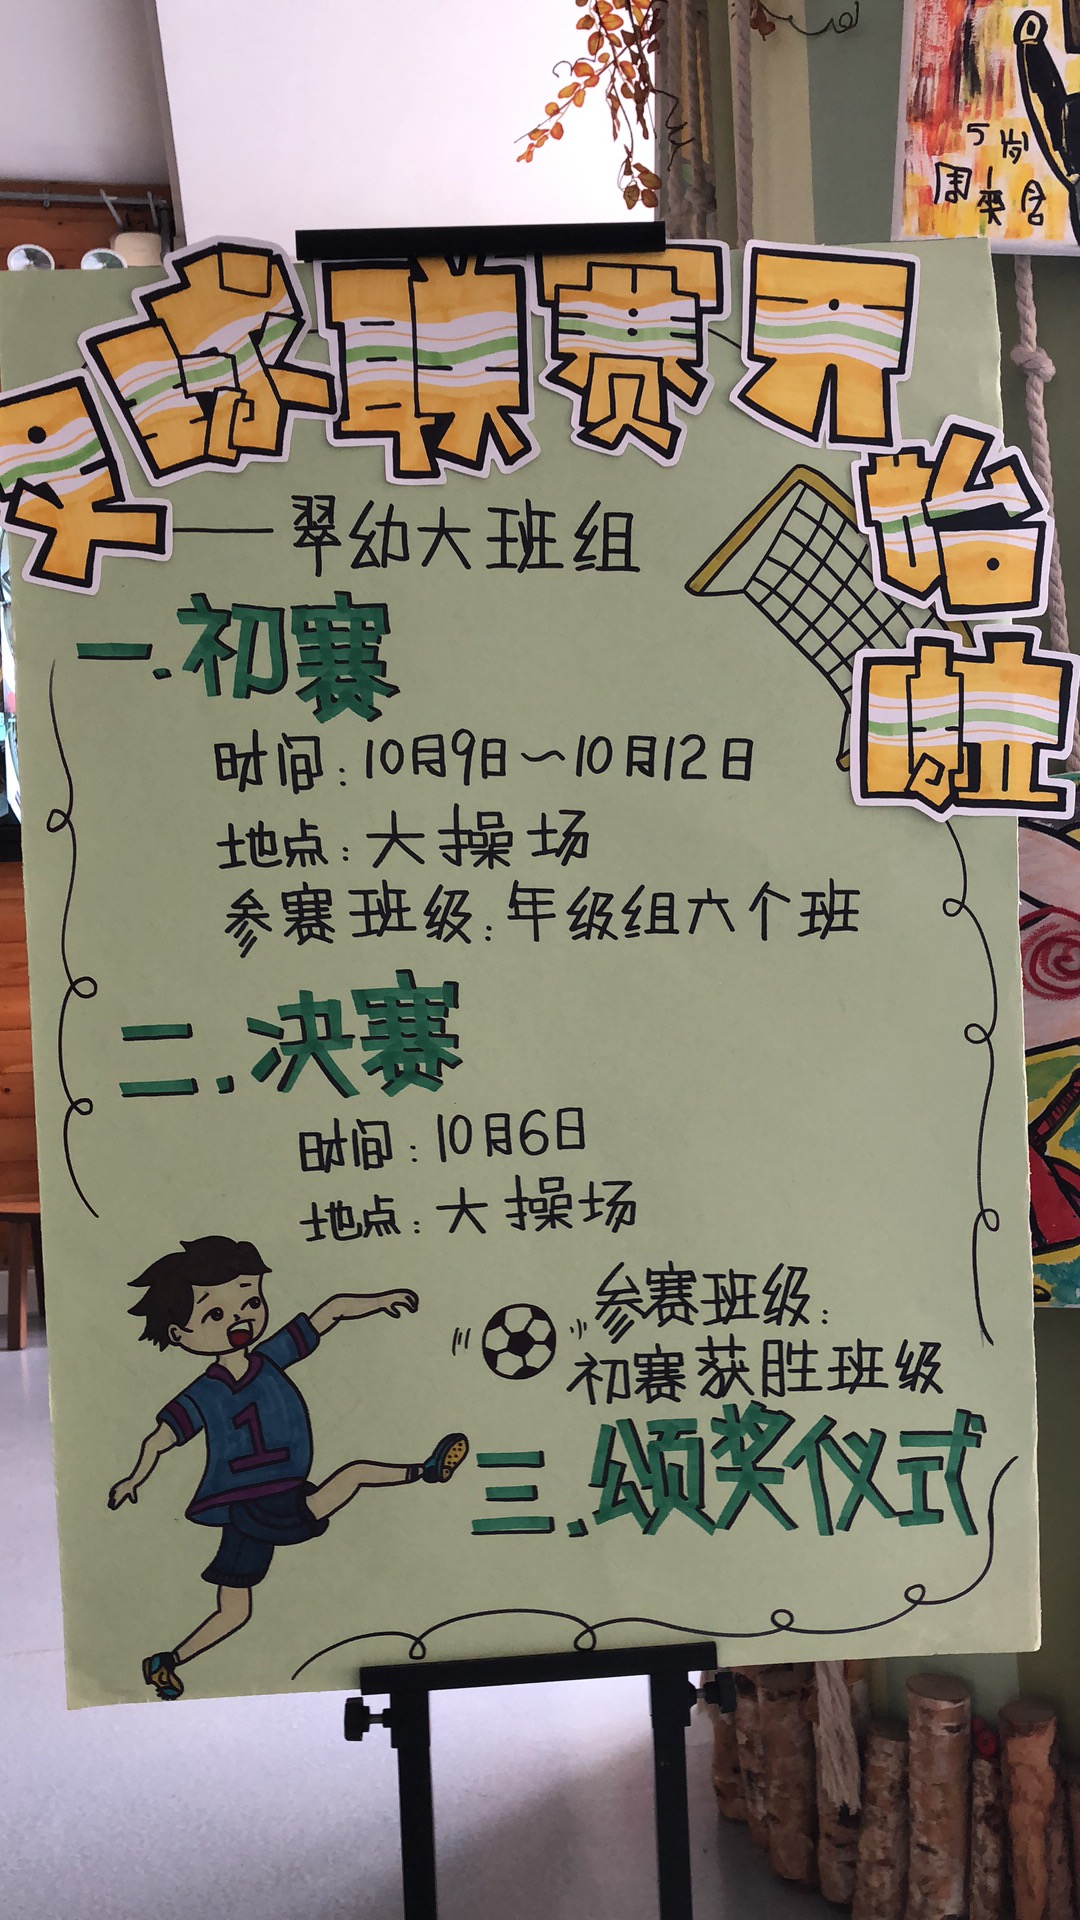 足球联赛开始啦
——翠幼大班组
一.初赛
时间:10月9日~10月12日
地点:大操场
参赛班级:年级组六个班
二.决赛
时间:10月6日
地点:大操场
参赛班级:
初赛获胜班级
三.颁奖仪式
1
5岁